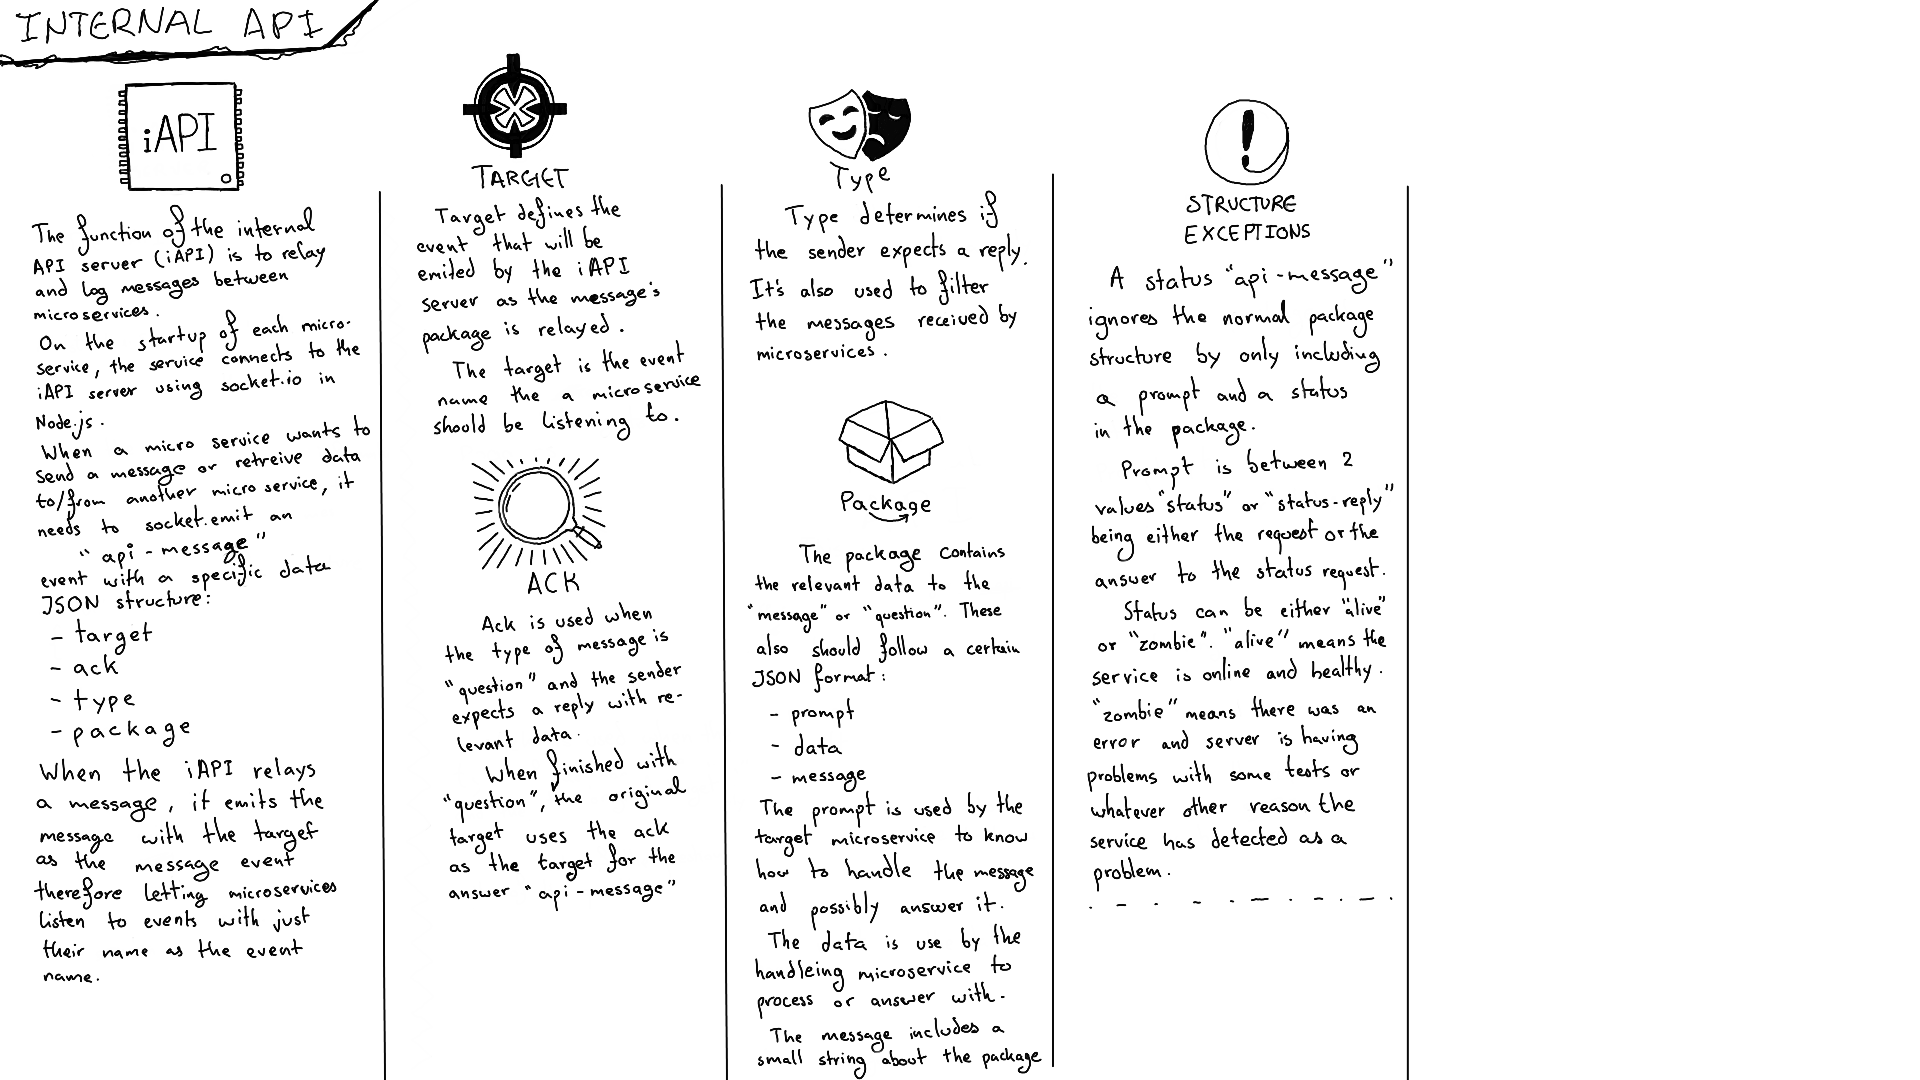 INTERNAL API
iAPI
The function of the internal
API server (iAPI) is to relay
and log messages between
microservices.
On the startup of each micro-
service, the service connects to the
iAPI server using socket.io in
Node.js.
When a micro service wants to
send a message or retreive data
to/from another micro service, it
needs to socket.emit an
"api-message"
event with a specific data
JSON structure:
- target
- ack
- type
- package
When the iAPI relays
a message, it emits the
message with the target
as the message event
therefore letting microservices
listen to events with just
their name as the event
name.
TARGET
Target defines the
event that will be
emited by the iAPI
server as the message's
package is relayed.
The target is the event
name the a microservice
should be listening to.
ACK
Ack is used when
the type of message is
"question" and the sender
expects a reply with re-
levant data.
When finished with
"question", the original
target uses the ack
as the target for the
answer "api-message"
Type
Type determines if
the sender expects a reply.
It's also used to filter
the messages received by
microservices.
Package
The package contains
the relevant data to the
"message" or "question". These
also should follow a certain
JSON format:
- prompt
- data
- message
The prompt is used by the
target microservice to know
how to handle the message
and possibly answer it.
The data is use by the
handleing microservice to
process or answer with.
The message includes a
small string about the package
STRUCTURE
EXCEPTIONS
A status "api-message"
ignores the normal package
structure by only including
a prompt and a status
in the package.
Prompt is between 2
values "status" or "status-reply"
being either the request or the
answer to the status request.
Status can be either "alive"
or "zombie". "alive" means the
service is online and healthy.
"zombie" means there was an
error and server is having
problems with some tests or
whatever other reason the
service has detected as a
problem.